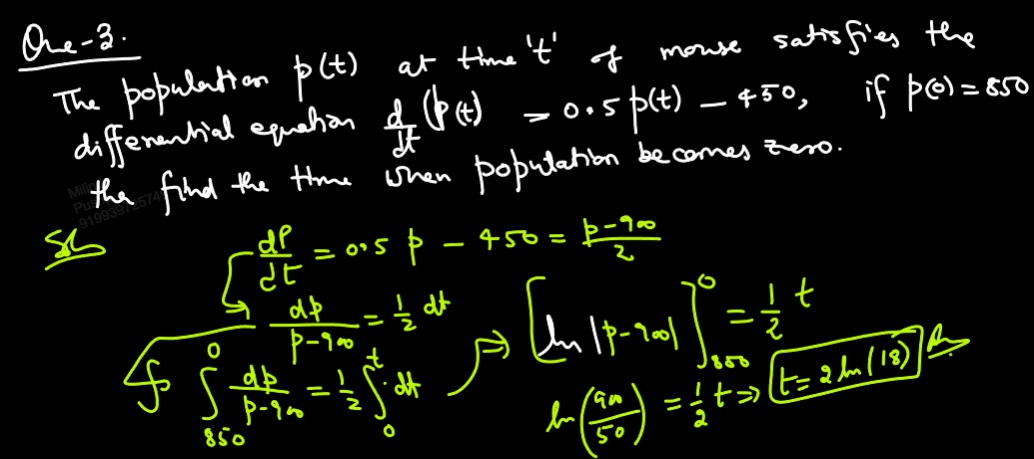 Que-3.
The population p(t) at time 't' of mouse satisfies the
differential equation d/dt (p(t)) = 0.5 p(t) – 450, if p(0) = 850
the find the time when population becomes zero.
Sol
dP/dt = 0.5 p – 450 = (p-900)/2
dp/(p-900) = 1/2 dt
∫_850^0 dp/(p-900) = 1/2 ∫_0^t dt
[ln |p-900|]_850^0 = 1/2 t
ln(900/50) = 1/2 t ⇒ t = 2 ln(18)